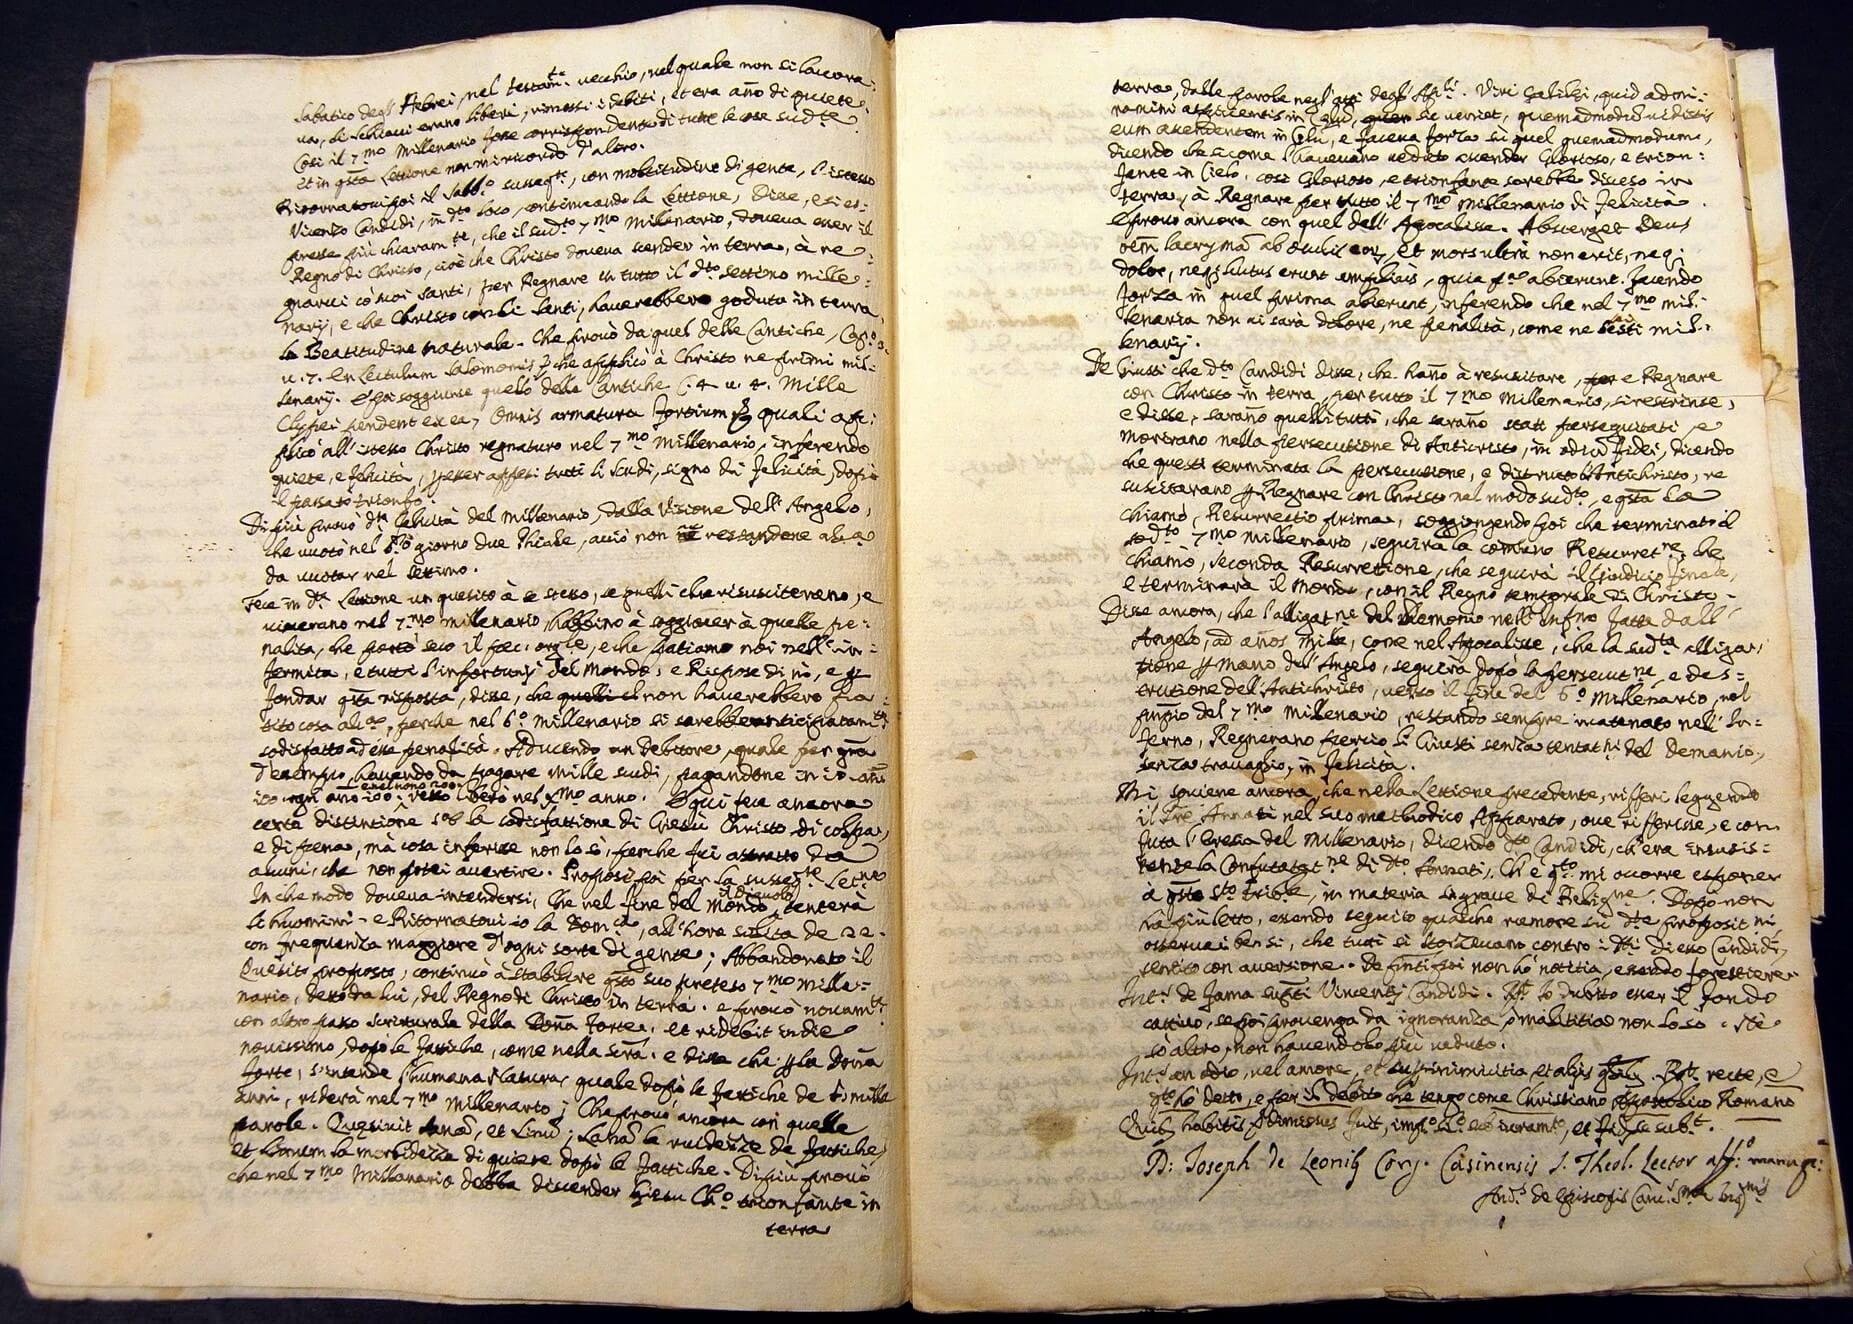 sabatico degl' Hebrei, nel testam.te vecchio, nel quale non si lavora:
va, li schiavi erano liberi, rimessi i debiti, et era año di quiete,
Così il 7.mo Millenario fosse corrispondente di tutte le cose sud.te
Et in q̃sta Lettione non mi ricordo d'altro.
Ritornatovi poi il Sabb.o susseg.te, con moltitudine di gente, l'istesso
Vicenzo Candidi, in d.to loco, continuando la Lettione, Disse, et es-
presse più chiaram.te, che il sud.to 7.mo Millenario, doveva esser il
Regno di Christo, cioè che Christo doveva scender in terra, à re
gnarvi cò suoi Santi, per Regnare in tutto il d.to settimo mille:
nario, e che Christo con li Santi, haverebbero goduta in terra
la Beatitudine naturale. Che provò da quel delle Cantiche, Cap.o 3.
u. 7. En Lectulum Salomonis, che applicò à Christo ne primi mil-
lenarij. E poi soggiunse quello delle Cantiche C. 4. u. 4. Mille
Clypei pendent ex ea, Omnis armatura fortium quali ap:
plicò all' istesso Christo regnaturo nel 7.mo Millenario, inferendo
quiete, e felicità, p esser appesi tutti li scudi, signo di felicità, dopò
il passato trionfo.
Di più provò d.ta felicità del Millenario, dalla Visione dell' Angelo,
che vuotò nel 6.o giorno due Phiale, avió non restandone
da vuotar nel settimo.
Fece in d.ta Lettione un quesito à se stesso, se quelli che risusciterano, e
viverano nel 7.mo Millenario, habbino à soggiacer à quelle pe-
nalità, che portò seco il pecc. orig.le, e che patiamo noi nell' in-
fermità, e tutti l'infortunij del Mondo, e Rispose di nò, e p
fondar q̃sta risposta, disse, che non haverebbero pa-
tito cosa alc.a, perche nel 6.o millenario si sarebbe anticipatam.te
sodisfatto ad essa penalità. Aducendo un Debitore, quale per gr̃a
d'esempio, havendo da pagare mille scudi, pagandone in 10 añi
100 ogni año, e nel nono 200, resta libero nel X.mo anno. E qui fece ancora
certa distintione sob la sodisfattione di Giesù Christo di colpa,
e di pena, mà cosa inferisse non lo sò, perche fui astratto da
alcuni, che non potei avertire. Propose poi per la susseg.te Lec.ne
In che modo doveva intendersi, che nel fine del mondo il diavolo tenterà
li huomini. e Ritornatovi io la Dom.ca, all' hora solita de se.
con frequenza maggiore d'ogni sorte di gente; Abbandonato il
Quesito proposto, continuò à stabilire q̃sto suo preteso 7.mo Mille-
nario, detto da lui, del Regno di Christo in terra. e provò novam.te
con altro passo scritturale della Doña forte, et ridebit in die
novissimo, dopo le fatiche, come nella scra. e disse che p la Doña
forte, s'intende l'humana Natura, quale dopò le fatiche de 6. milla
anni, riderà nel 7.mo Millenario; Che provò ancora con quelle
parole. Quaesivit lanã, et Linũ; Lanã la ruidezze de fatiche,
et Linum la morbidezza di quiete dopò le fattiche. Di più provò
che nel 7.mo Millenario debba discender Giesu Ch.o trionfante in
terra
terra, dalle parole negl' atti degl' Ap.li. Viri Galilei, quid admi:
ramini aspicientes in Celũ, sic veniet, quemadmodũ vidistis
eum ascendentem in Celũ, e faceva forza sù quel quemadmodum,
dicendo che si come l'havevano veduto ascender Glorioso, e trion:
fante in Cielo, così Glorioso, e trionfante sarebbe disceso in
terra, à Regnare per tutto il 7.mo Millenario di felicità.
e provò ancora con quel dell' Apocalisse. Absterget Deus
om̃ lacrymã ab oculis eor, et mors ultrà non erit, neq;
dolor, neq; luctus erunt amplius, quia p.a abierunt. facendo
forza in quel prima abierunt, inferendo che nel 7.mo mil:
lenario non ci sarà dolore, ne penalità, come ne sesti mil:
lenarij.
De Giusti che d.to Candidi disse, che hano à resuscitare, e Regnare
con Christo in terra, per tutto il 7.mo Millenario, si restrinse,
e disse, sarano quelli tutti, che sarano stati perseguitati, e
morirano nella persecutione di Anticristo, in odiũ fidei, dicendo
che questi terminata la persecutione, e distrutto l'Antichristo, re
susciterano p Regnare con Christo nel modo sud.to, e q̃sta la
chiamò, Resurrectio prima, soggiongendo poi che terminato il
sod.to 7.mo Millenario, seguirà la comune Resurret.ne, che
chiamò, seconda Resurrettione, che seguirà il Giudicio finale,
e terminarà il Mondo, con il Regno temporale di Christo.
Disse ancora, che l'alligat.ne del Demonio nell' Infno fatta dall'
Angelo, ad años mille, come nel Apocalisse, che la sud.ta alliga-
tione p mano dell' Angelo, seguirà dopò la persecut.ne, e des-
trutione dell' Antichristo, verso il fine del 6.o Millenario, nel
prinpio del 7.mo Millenario, restando sempre incatenato nell' In-
ferno, Regnerano perciò li Giusti senza tentat.ni del Demonio,
senza travaglio, in felicità.
Mi soviene ancora, che nella Lettione precedente, rifferì leggendo
il Pre Annati nel suo methodico Apparato, ove rifferisse, e con-
futa l'Eresia del Millenario, dicendo d.to Candidi, ch'era insusis-
tente la Confutatat.ne di d.to Annati, Ch'è q.to mi occorre esponer
à q̃sto S.to Trib.le, in materia sì grave di Relig.ne. Dopò non
hà più letto, essendo seguito qualche rumore sù d.te proposit.ni
osservai ben si, che tutti si storzevano contro i d.ti di esso Candidi,
sentito con aversione. De finti poi non hò notitia, essendo forestiere.
Int.s de fama sup.ti Vincentij Candidi. R.t Io dubito esser il fondo
cattivo, se poi provenga da ignoranza, ò malitia non lo sò. Nè
sò altro, non havendolo più veduto.
Int.s an odio, vel amore, et inimicitia et alijs R.t recte, e
q.to hò detto, e per il debito che tengo come Christiano Apostolico Romano
Quib habitis, dimissus fuit, imp.o si.o cũ iuram.to, et fid. se sub.t.
D: Joseph de Leonib Cong. Casinensis S. Theol. Lector aff.o manu pr:
And.s de Episcopis Canc.s